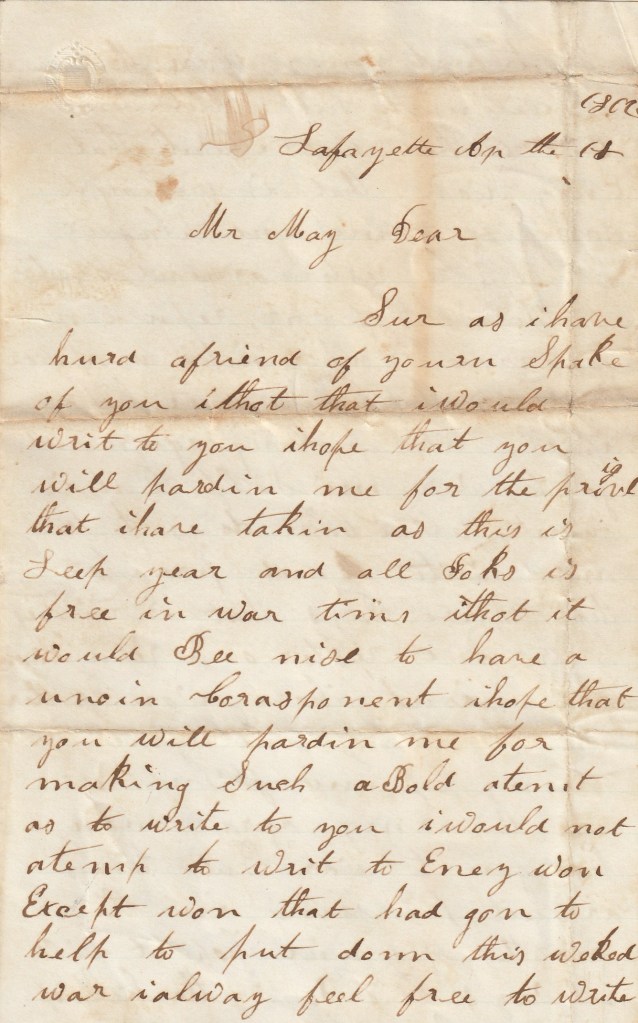 Lafayette Ap the 18
Mr May Dear
Sur as i have
hurd afriend of yourn Spake
of you ithot that iwould
writ to you ihope that you
will pardin me for the
that ihave takin as this is
Leep year and all Foks is
free in war tims ithot it
would Bee nise to have a
unoin Corasponent ihope that
you will pardin me for
making Such aBold atemt
as to write to you iwould not
atemp to writ to Eney won
Except won that had gon to
help to put down this weked
war ialway feel free to write